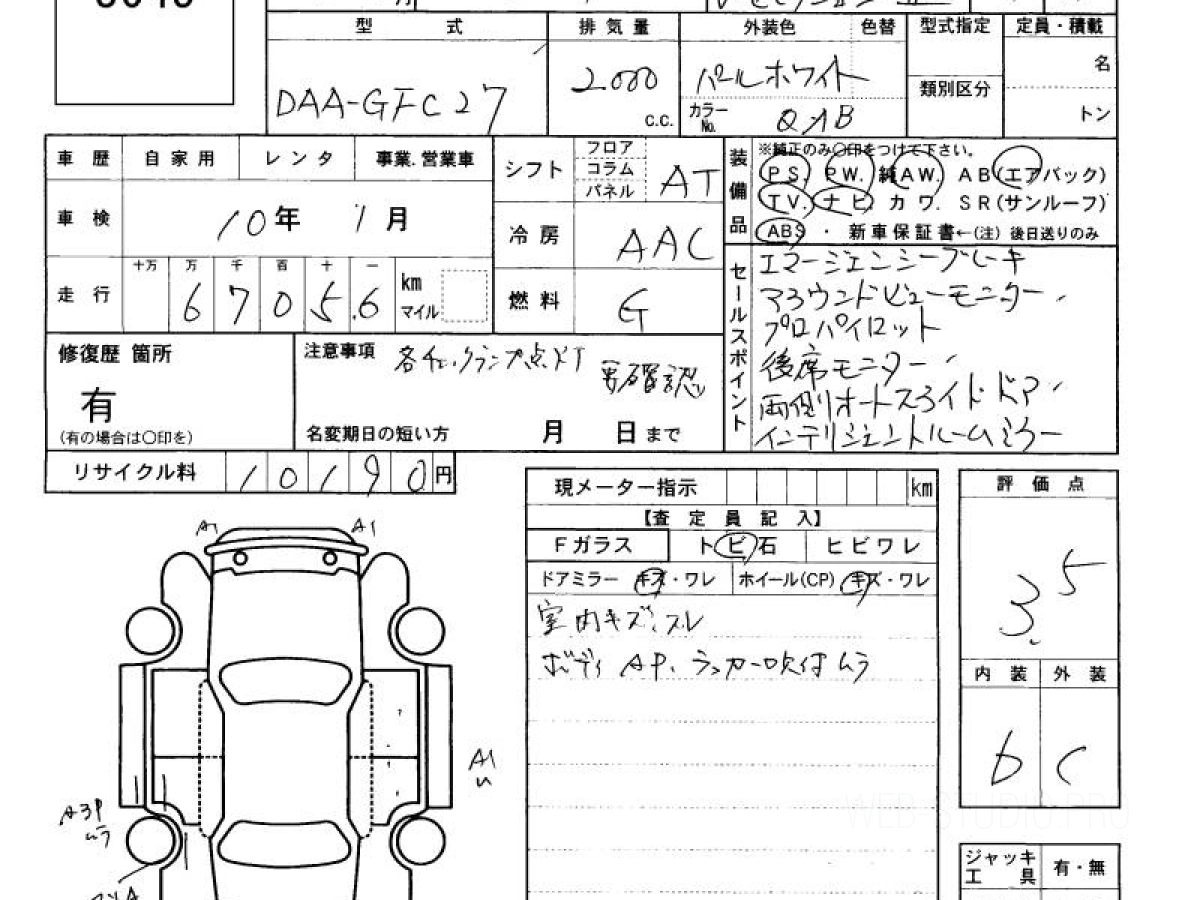 型 式 排 気 量 外装色 色替 型式指定 定員・積載
DAA-GFC27 2000 c.c. パールホワイト 名
類別区分
カラーNo. QAB トン
車 歴 自 家 用 レ ン タ 事業.営業車
シフト フロア コラム パネル AT
車 検 10年 1月
冷 房 AAC
走 行 十万 万 千 百 十 一
67056 km マイル
燃 料 G
装備品 ※純正のみ〇印をつけて下さい。
PS. PW. 純AW. AB(エアバック)
TV. ナビ. カワ. SR(サンルーフ)
ABS ・ 新車保証書←(注) 後日送りのみ
セールスポイント
エマージェンシーブレーキ
アラウンドビューモニター.
プロパイロット
後席モニター
両側オートスライドドア
インテリジェントルームミラー
修復歴 箇所
有
(有の場合は〇印を)
注意事項 各チェックランプ点灯 要確認
名変期日の短い方 月 日 まで
リサイクル料 10190円
現メーター指示 km
【査 定 員 記 入】
Fガラス トビ石 ヒビワレ
ドアミラー キズ・ワレ ホイール(CP) キズ・ワレ
室内キズ、スレ
ボディ AP、ラッカー吹付ムラ
評 価 点
3.5
内 装 外 装
b C
ジャッキ
工 具 有・無
A1 A1
A1
A3P
ムラ
WEB-STUDIO.PRO